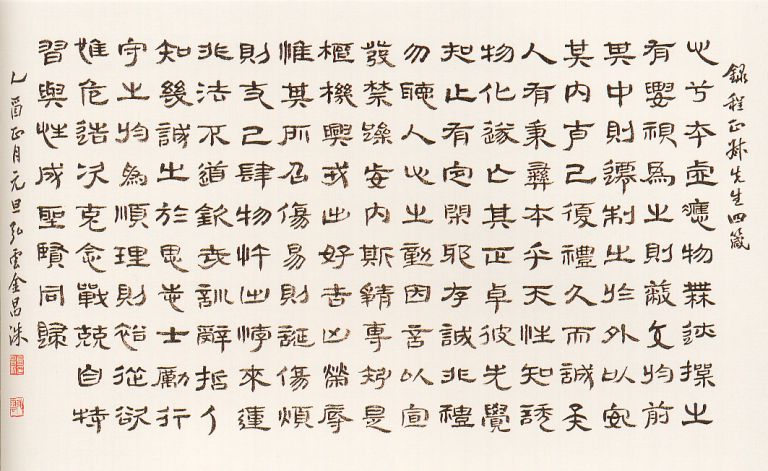 錄程正叔先生四箴
心兮本虛應物無迹操之
有要視爲之則蔽交於前
其中則遷制之於外以安
其內克己復禮久而誠矣
人有秉彝本乎天性知誘
物化遂亡其正卓彼先覺
知止有定閑邪存誠非禮
勿聽人心之動因言以宣
發禁躁妄內斯靜專矧是
樞機興戎出好吉凶榮辱
惟其所召傷易則誕傷煩
則支己肆物忤出悖來違
非法不道欽哉訓辭哲人
知幾誠之於思志士勵行
守之於爲順理則裕從欲
惟危造次克念戰兢自持
習與性成聖賢同歸
乙酉正月元旦弘雲金昌洙